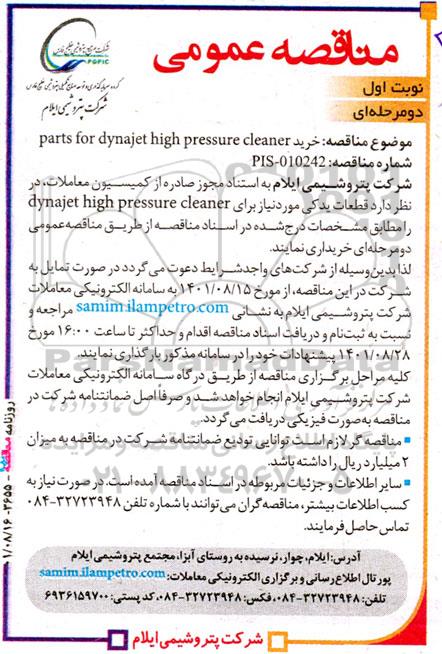 مناقصه عمومی
شرکت صنایع پتروشیمی خلیج فارس
PGPIC
گروه سرمایه‌گذاری و توسعه صنایع تکمیلی پتروشیمی خلیج فارس
شرکت پتروشیمی ایلام
نوبت اول
دومرحله‌ای
موضوع مناقصه: خرید parts for dynajet high pressure cleaner
شماره مناقصه: PIS-010242
شرکت پتروشیمی ایلام به استناد مجوز صادره از کمیسیون معاملات، در
نظر دارد قطعات یدکی مورد نیاز برای dynajet high pressure cleaner
را مطابق مشخصات درج‌شده در اسناد مناقصه از طریق مناقصه عمومی
دومرحله‌ای خریداری نمایند.
لذا بدین‌وسیله از شرکت‌های واجد شرایط دعوت می‌گردد در صورت تمایل به
شرکت در این مناقصه، از مورخ ۱۴۰۱/۰۸/۱۵ به سامانه الکترونیکی معاملات
شرکت پتروشیمی ایلام به نشانی samim.ilampetro.com مراجعه و
نسبت به ثبت‌نام و دریافت اسناد مناقصه اقدام و حداکثر تا ساعت ۱۶:۰۰ مورخ
۱۴۰۱/۰۸/۲۸ پیشنهادات خود را در سامانه مذکور بارگذاری نمایند.
کلیه مراحل برگزاری مناقصه از طریق درگاه سامانه الکترونیکی معاملات
شرکت پتروشیمی ایلام انجام خواهد شد و صرفاً اصل ضمانتنامه شرکت در
مناقصه به‌صورت فیزیکی دریافت می‌گردد.
▪ مناقصه گر لازم است توانایی تودیع ضمانتنامه شرکت در مناقصه به میزان
۲ میلیارد ریال را داشته باشد.
▪ سایر اطلاعات و جزئیات مربوطه در اسناد مناقصه آمده است. در صورت نیاز به
کسب اطلاعات بیشتر، مناقصه‌گران می‌توانند با شماره تلفن ۳۲۷۲۳۹۴۸-۰۸۴
تماس حاصل فرمایند.
آدرس: ایلام، چوار، نرسیده به روستای آبزا، مجتمع پتروشیمی ایلام
پورتال اطلاع رسانی و برگزاری الکترونیکی معاملات: samim.ilampetro.com
تلفن: ۳۲۷۲۳۹۴۸-۰۸۴، فکس: ۳۲۷۲۳۹۴۸-۰۸۴، کد پستی: ۶۹۳۶۱۵۹۷۰۰
شرکت پتروشیمی ایلام
روزنامه مناقصه - ۳۶۵۵ - ۱/۰۸/۱۶